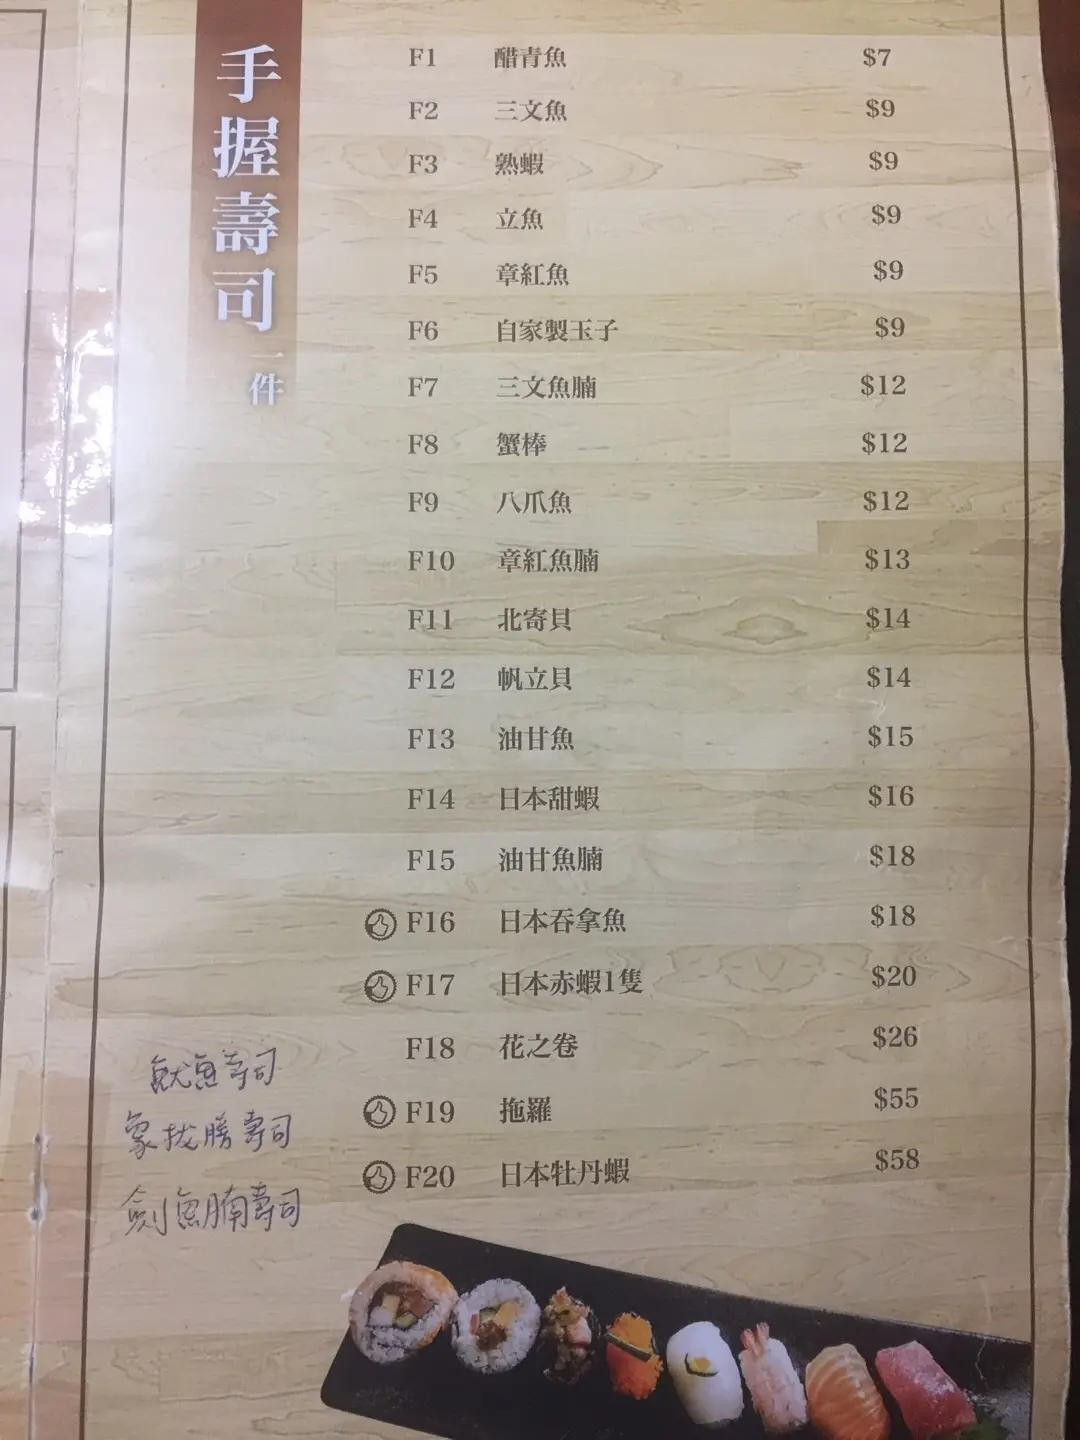 手握壽司 一件
F1 醋青魚 $7
F2 三文魚 $9
F3 熟蝦 $9
F4 立魚 $9
F5 章紅魚 $9
F6 自家製玉子 $9
F7 三文魚腩 $12
F8 蟹棒 $12
F9 八爪魚 $12
F10 章紅魚腩 $13
F11 北寄貝 $14
F12 帆立貝 $14
F13 油甘魚 $15
F14 日本甜蝦 $16
F15 油甘魚腩 $18
F16 日本吞拿魚 $18
F17 日本赤蝦1隻 $20
F18 花之卷 $26
F19 拖羅 $55
F20 日本牡丹蝦 $58
魷魚壽司
象拔膀壽司
劍魚腩壽司